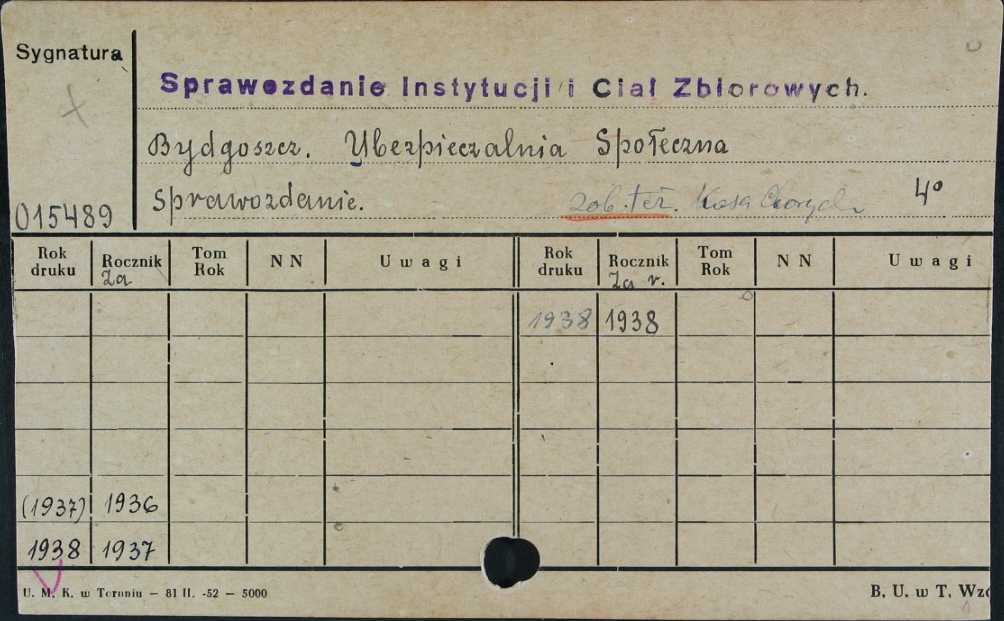 Sygnatura
Sprawozdanie Instytucji i Ciał Zbiorowych.
Bydgoszcz. Ubezpieczalnia Społeczna
Sprawozdanie. zob. też. Kasa Chorych 4°
015489
Rok druku Rocznik Za Tom Rok NN Uwagi Rok druku Rocznik Za r. Tom Rok NN Uwagi
1938 1938
(1937) 1936
1938 1937
U. M. K. w Toruniu — 81 II. -52 — 5000 B. U. w T. Wzó